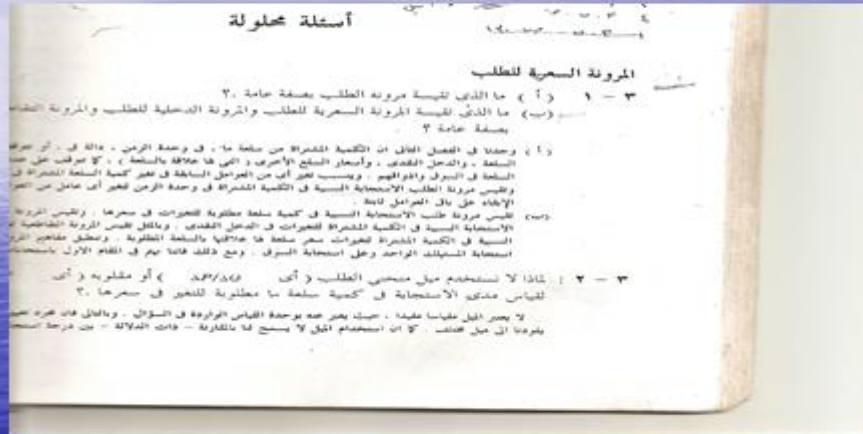 أسئلة محلولة
المرونة السعرية للطلب
٣ – ١ ( أ ) ما الذى تقيسة مرونة الطلب بصفة عامة ؟.
(ب) ما الذى تقيسة المرونة السعرية للطلب والمرونة الدخلية للطلب والمرونة
بصفة عامة ؟
( أ ) وجدنا فى الفصل الثانى ان الكمية المشتراة من سلعة ما ، فى وحدة الزمن ، دالة فى ، أو
السلعة ، والدخل النقدى ، وأسعار السلع الأخرى ( التى لها علاقة بالسلعة ) ، كما تتوقف على
السلعة فى السوق واذواقهم . ويتسبب تغير أى من العوامل السابقة فى تغير كمية السلعة المشتراة فى
وتقيس مرونة الطلب الاستجابة النسبية فى الكمية المشتراة فى وحدة الزمن لتغير أى عامل من
الإبقاء على باقى العوامل ثابتة .
(ب) تقيس مرونة طلب الاستجابة النسبية فى كمية سلعة مطلوبة للتغيرات فى سعرها . وتقيس المرونة
الاستجابة النسبية فى الكمية المشتراة للتغيرات فى الدخل النقدى . وبالمثل تقيس المرونة التقاطعية
النسبية فى الكمية المشتراة لتغيرات سعر سلعة لها علاقتها بالسلعة المطلوبة . وتنطبق مفاهيم
استجابة المستهلك الواحد وعلى استجابة السوق . ومع ذلك فاننا نهتم فى المقام الأول
٣ – ٢ : لماذا لا نستخدم ميل منحنى الطلب ( أى ΔP/ΔQ ) أو مقلوبه ( أى
لقياس مدى الاستجابة فى كمية سلعة ما مطلوبة للتغير فى سعرها ؟.
لا يعتبر الميل مقياسا مفيدا ، حيث يعبر عنه بوحدة القياس الواردة فى السؤال . وبالتالى فان مجرد
يقودنا الى ميل مختلف . كما ان استخدام الميل لا يسمح لنا بالمقارنة – ذات الدلالة – بين درجة